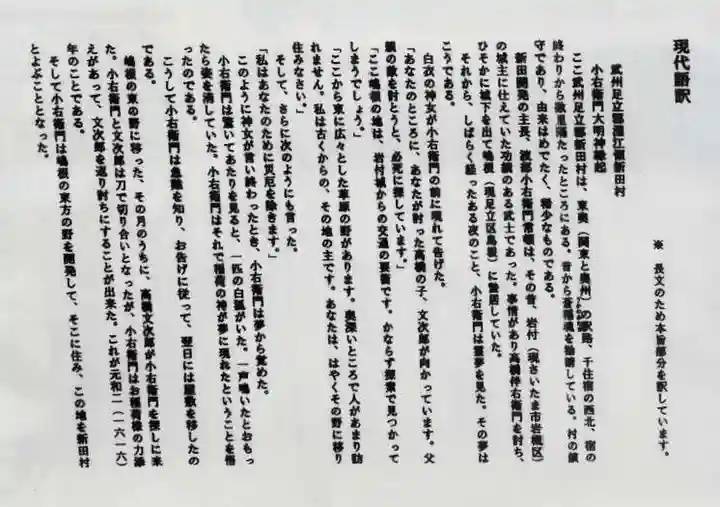 現代語訳
※ 長文のため本旨部分を訳しています。
武州足立郡淵江領新田村
小右衛門大明神縁起
ここ武州足立郡新田村は、東奥（関東と奥州）の駅路、千住宿の西北、宿の
終わりから数里隔たったところにある。昔から蒼稲魂を勧請している。村の鎮
守であり、由来はめでたく、稀少なものである。
新田開発の主長、渡部小右衛門常頓は、その昔、岩付（現さいたま市岩槻区）
の城主に仕えていた功績のある武士であった。事情があり高橋伴右衛門を討ち、
ひそかに城下を出て嶋根（現足立区島根）に蟄居していた。
それから、しばらく経ったある夜のこと、小右衛門は霊夢を見た。その夢は
こうである。
白衣の神女が小右衛門の前に現れて告げた。
「あなたのところに、あなたが討った高橋の子、文次郎が向かっています。父
親の敵を討とうと、必死に探しています。」
「ここ嶋根の地は、岩付城からの交通の要衝です。かならず探索で見つかって
しまうでしょう。」
「ここから東に広々とした草原の野があります。奥深いところで人があまり訪
れません。私は古くからの、その地の主です。あなたは、はやくその野に移り
住みなさい。」
そして、さらに次のようにも言った。
「私はあなたのために災厄を除きます。」
このように神女が言い終わったとき、小右衛門は夢から覚めた。
小右衛門は驚いてあたりを見ると、一匹の白狐がいた。一声鳴いたとおもっ
たら姿を消していた。小右衛門はそれで稲荷の神が夢に現れたということを悟
ったのである。
こうして小右衛門は急難を知り、お告げに従って、翌日には屋敷を移したの
である。
嶋根の東の野に移った、その月のうちに、高橋文次郎が小右衛門を探しに来
た。小右衛門と文次郎は刀で切り合いとなったが、小右衛門はお稲荷様の力添
えがあって、文次郎を返り討ちにすることが出来た。これが元和二（一六一六）
年のことである。
そして小右衛門は嶋根の東方の野を開発して、そこに住み、この地を新田村
とよぶこととなった。